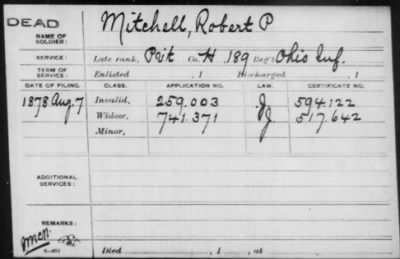 DEAD
NAME OF SOLDIER: Mitchell, Robert P
SERVICE: Late rank, Prvt Co. H 189 Reg't Ohio Inf.
TERM OF SERVICE: Enlisted , 1 Discharged , 1
DATE OF FILING. CLASS. APPLICATION NO. LAW. CERTIFICATE NO.
1878 Aug. 7 Invalid, 259.003 J 594.122
Widow, 741.371 J 517.642
Minor,
ADDITIONAL SERVICES:
REMARKS:
Died , 1 , at